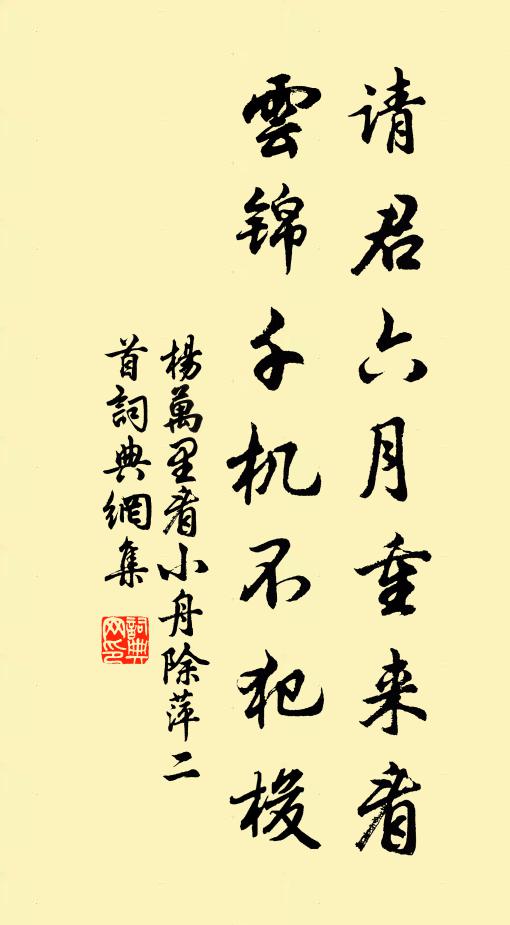 请君六月重来看
雲锦千机不犯梭
楊萬里看小舟除萍二
首詞典網集
詞典網印